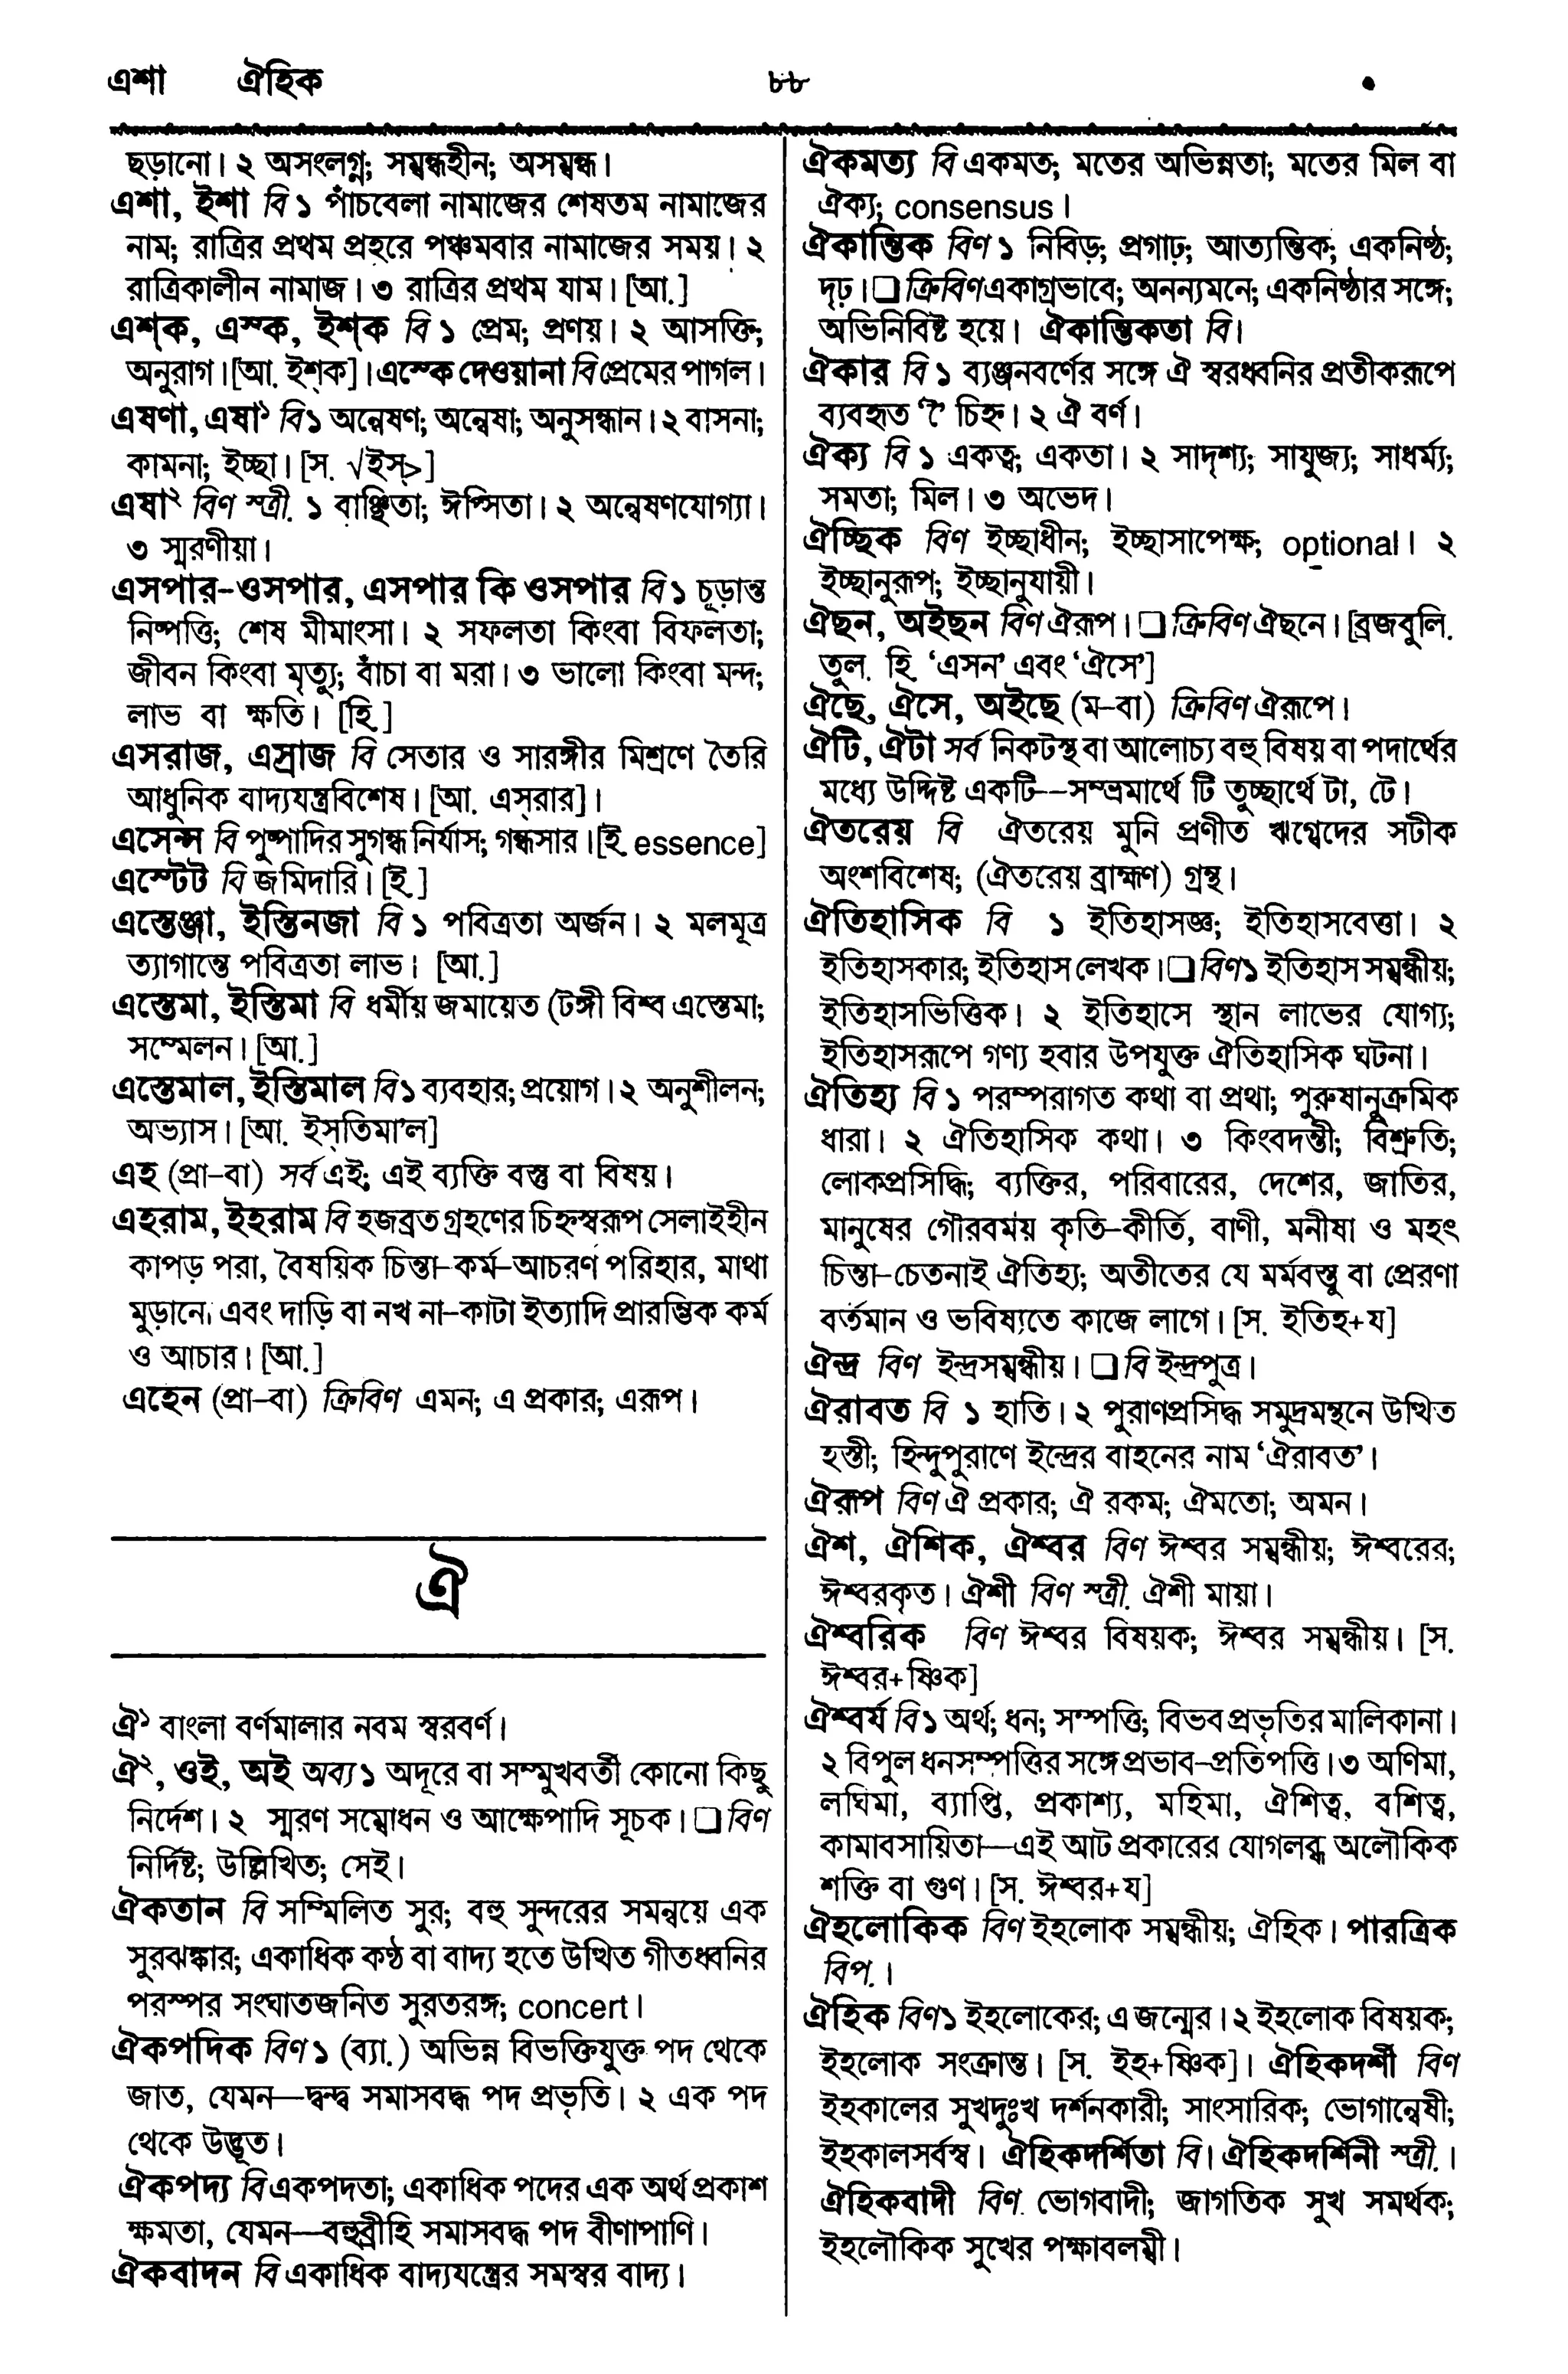 এশা ঐহিক ৮৮
ছড়ানো। ২ অসংলগ্ন; সম্বন্ধহীন; অসম্বন্ধ।
এশা, ইশা বি ১ পাঁচবেলা নামাজের শেষতম নামাজের
নাম; রাত্রির প্রথম প্রহরে পঞ্চমবার নামাজের সময়। ২
রাত্রিকালীন নামাজ। ৩ রাত্রির প্রথম যাম। [আ.]
এশ্‌ক, এস্ক, ইশ্‌ক বি ১ প্রেম; প্রণয়। ২ আসক্তি;
অনুরাগ। [আ. ইশ্‌ক]। এস্কে দেওয়ানা বি প্রেমের পাগল।
এষণা, এষা১ বি ১ অন্বেষণ; অন্বেষা; অনুসন্ধান। ২ বাসনা;
কামনা; ইচ্ছা। [স. √ইস্>]
এষা২ বিণ স্ত্রী. ১ বাঞ্ছিতা; ঈপ্সিতা। ২ অন্বেষণযোগ্যা।
৩ স্মরণীয়া।
এসপার-ওসপার, এসপার কি ওসপার বি ১ চূড়ান্ত
নিষ্পত্তি; শেষ মীমাংসা। ২ সফলতা কিংবা বিফলতা;
জীবন কিংবা মৃত্যু; বাঁচা বা মরা। ৩ ভালো কিংবা মন্দ;
লাভ বা ক্ষতি। [হি.]
এসরাজ, এস্রাজ বি সেতার ও সারঙ্গীর মিশ্রণে তৈরি
আধুনিক বাদ্যযন্ত্রবিশেষ। [আ. এস্‌রার]।
এসেন্স বি পুষ্পাদির সুগন্ধ নির্যাস; গন্ধসার। [ই. essence]
এস্টেট বি জমিদারি। [ই.]
এস্তেঞ্জা, ইস্তিনজা বি ১ পবিত্রতা অর্জন। ২ মলমূত্র
ত্যাগান্তে পবিত্রতা লাভ। [আ.]
এস্তেমা, ইস্তিমা বি ধর্মীয় জমায়েত (টঙ্গী বিশ্ব এস্তেমা;
সম্মেলন। [আ.]
এস্তেমাল, ইস্তিমাল বি ১ ব্যবহার; প্রয়োগ। ২ অনুশীলন;
অভ্যাস। [আ. ইস্‌তিমা’ল]
এহ (প্রা-বা) সর্ব এই; এই ব্যক্তি বস্তু বা বিষয়।
এহরাম, ইহরাম বি হজব্রত গ্রহণের চিহ্নস্বরূপ সেলাইহীন
কাপড় পরা, বৈষয়িক চিন্তা-কর্ম-আচরণ পরিহার, মাথা
মুড়ানো এবং দাড়ি বা নখ না-কাটা ইত্যাদি প্রারম্ভিক কর্ম
ও আচার। [আ.]
এহেন (প্রা-বা) ক্রিবিণ এমন; এ প্রকার; এরূপ।
ঐ
ঐ১ বাংলা বর্ণমালার নবম স্বরবর্ণ।
ঐ২, ওই, অই অব্য ১ অদূরে বা সম্মুখবর্তী কোনো কিছু
নির্দেশ। ২ স্মরণ সম্বোধন ও আক্ষেপাদি সূচক। ❑ বিণ
নির্দিষ্ট; উল্লিখিত; সেই।
ঐকতান বি সম্মিলিত সুর; বহু সুন্দরের সমন্বয়ে এক
সুরঝঙ্কার; একাধিক কণ্ঠ বা বাদ্য হতে উত্থিত গীতধ্বনির
পরস্পর সংঘাতজনিত সুরতরঙ্গ; concert।
ঐকপদিক বিণ ১ (ব্যা.) অভিন্ন বিভক্তিযুক্ত পদ থেকে
জাত, যেমন—দ্বন্দ্ব সমাসবদ্ধ পদ প্রভৃতি। ২ এক পদ
থেকে উদ্ভূত।
ঐকপদ্য বি একপদতা; একাধিক পদের এক অর্থ প্রকাশ
ক্ষমতা, যেমন—বহুব্রীহি সমাসবদ্ধ পদ বীণাপাণি।
ঐকবাদন বি একাধিক বাদ্যযন্ত্রের সমস্বর বাদ্য।
ঐকমত্য বি একমত; মতের অভিন্নতা; মতের মিল বা
ঐক্য; consensus।
ঐকান্তিক বিণ ১ নিবিড়; প্রগাঢ়; আত্যন্তিক; একনিষ্ঠ;
দৃঢ়। ❑ ক্রিবিণ একাগ্রভাবে; অনন্যমনে; একনিষ্ঠার সঙ্গে;
অভিনিবিষ্ট হয়ে। ঐকান্তিকতা বি।
ঐকার বি ১ ব্যঞ্জনবর্ণের সঙ্গে ঐ স্বরধ্বনির প্রতীকরূপে
ব্যবহৃত ‘ৈ’ চিহ্ন। ২ ঐ বর্ণ।
ঐক্য বি ১ একত্ব; একতা। ২ সাদৃশ্য; সাযুজ্য; সাধর্ম্য;
সমতা; মিল। ৩ অভেদ।
ঐচ্ছিক বিণ ইচ্ছাধীন; ইচ্ছাসাপেক্ষ; optional। ২
ইচ্ছানুরূপ; ইচ্ছানুযায়ী।
ঐছন, অইছন বিণ ঐরূপ। ❑ ক্রিবিণ ঐছনে। [ব্রজবুলি.
তুল. হি. ‘এসন’ এবং ‘ঐসে’]
ঐছে, ঐসে, অইছে (ম-বা) ক্রিবিণ ঐরূপে।
ঐটি, ঐটা সর্ব নিকটস্থ বা আলোচ্য বহু বিষয় বা পদার্থের
মধ্যে উদ্দিষ্ট একটি—সম্ভ্রমার্থে টি তুচ্ছার্থে টা, টে।
ঐতরেয় বি ঐতরেয় মুনি প্রণীত ঋগ্বেদের সটীক
অংশবিশেষ; (ঐতরেয় ব্রাহ্মণ) গ্রন্থ।
ঐতিহাসিক বি ১ ইতিহাসজ্ঞ; ইতিহাসবেত্তা। ২
ইতিহাসকার; ইতিহাস লেখক। ❑ বিণ ১ ইতিহাস সম্বন্ধীয়;
ইতিহাসভিত্তিক। ২ ইতিহাসে স্থান লাভের যোগ্য;
ইতিহাসরূপে গণ্য হবার উপযুক্ত ঐতিহাসিক ঘটনা।
ঐতিহ্য বি ১ পরম্পরাগত কথা বা প্রথা; পুরুষানুক্রমিক
ধারা। ২ ঐতিহাসিক কথা। ৩ কিংবদন্তী; বিশ্রুতি;
লোকপ্রসিদ্ধি; ব্যক্তির, পরিবারের, দেশের, জাতির,
মানুষের গৌরবময় কৃতি-কীর্তি, বাণী, মনীষা ও মহৎ
চিন্তা-চেতনাই ঐতিহ্য; অতীতের যে মর্মবস্তু বা প্রেরণা
বর্তমান ও ভবিষ্যতে কাজে লাগে। [স. ইতিহ+য]
ঐন্দ্র বিণ ইন্দ্রসম্বন্ধীয়। ❑ বি ইন্দ্রপুত্র।
ঐরাবত বি ১ হাতি। ২ পুরাণপ্রসিদ্ধ সমুদ্রমন্থনে উত্থিত
হস্তী; হিন্দুপুরাণে ইন্দ্রের বাহনের নাম ‘ঐরাবত’।
ঐরূপ বিণ ঐ প্রকার; ঐ রকম; ঐমতো; অমন।
ঐশ, ঐশিক, ঐশ্বর বিণ ঈশ্বর সম্বন্ধীয়; ঈশ্বরের;
ঈশ্বরকৃত। ঐশী বিণ স্ত্রী. ঐশী মায়া।
ঐশ্বরিক বিণ ঈশ্বর বিষয়ক; ঈশ্বর সম্বন্ধীয়। [স.
ঈশ্বর+ষ্ণিক]
ঐশ্বর্য বি ১ অর্থ; ধন; সম্পত্তি; বিভব প্রভৃতির মালিকানা।
২ বিপুল ধনসম্পত্তির সঙ্গে প্রভাব-প্রতিপত্তি। ৩ অণিমা,
লঘিমা, ব্যাপ্তি, প্রকাশ্য, মহিমা, ঐশিত্ব, বশিত্ব,
কামাবসায়িতা—এই আট প্রকারের যোগলব্ধ অলৌকিক
শক্তি বা গুণ। [স. ঈশ্বর+য]
ঐহলোকিক বিণ ইহলোক সম্বন্ধীয়; ঐহিক। পারত্রিক
বিপ.।
ঐহিক বিণ ১ ইহলোকের; এ জন্মের। ২ ইহলোক বিষয়ক;
ইহলোক সংক্রান্ত। [স. ইহ+ষ্ণিক]। ঐহিকদর্শী বিণ
ইহকালের সুখদুঃখ দর্শনকারী; সাংসারিক; ভোগান্বেষী;
ইহকালসর্বস্ব। ঐহিকদর্শিতা বি। ঐহিকদর্শিনী স্ত্রী.।
ঐহিকবাদী বিণ. ভোগবাদী; জাগতিক সুখ সমর্থক;
ইহলৌকিক সুখের পক্ষাবলম্বী।